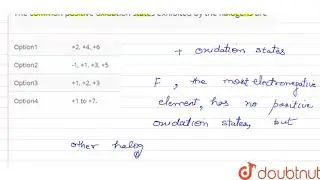 The common positive oxidation states exhibited by the halogens are
Option1 +2, +4, +6
Option2 -1, +1, +3, +5
Option3 +1, +2, +3
Option4 +1 to +7.
+ oxidation states
F, the most electronegative
element, has no positive
oxidation states, but
other halog
doubtnut